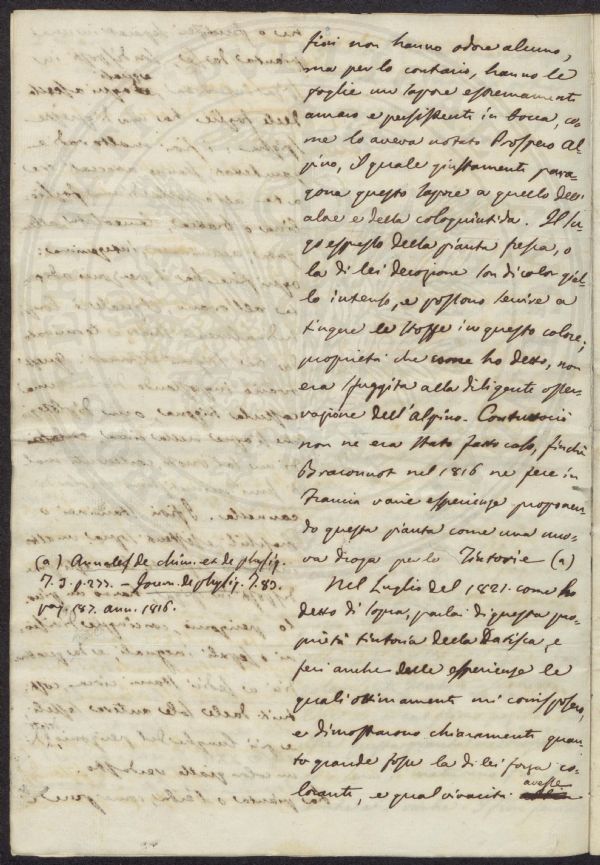 fiori non hanno odore alcuno,
ma per lo contario, hanno le
foglie un sapore estremamente
amaro e persistente in bocca, co-
me lo aveva notato Prospero Al-
pino, il quale giustamente para-
gona questo sapore a quello dell'
aloe e della coloquintida. Il su-
go espresso della pianta fresca, o
la di lei decozione son di color gial-
lo intenso, e possono servire a
tingere le stoffe in questo colore;
proprietà che come ho detto, non
era sfuggita alla diligente osser-
vazione dell'Alpino. Contuttociò
non ne era stato fatto caso, finchè
Braconnot nel 1816 ne fece in
Francia varie esperienze proponen-
do questa pianta come una nuo-
va droga per le Tintorie (a)
(a) Annales de chim. et de phisiq.
T. 3. p. 277. - Journ. de physiq. T. 83.
pag. 187. ann. 1816.
Nel Luglio del 1821. come ho
detto di sopra, parlai di questa pro-
prietà tintoria della Datisca, e
feci anche delle esperienze le
quali ottimamente mi corrisposero,
e dimostrarono chiaramente quan-
to grande fosse la di lei forza co-
lorante, e qual vivacità avesse